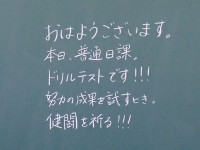 おはようございます。
本日、普通日課。
ドリルテストです!!!
努力の成果を試すとき。
健闘を祈る!!!